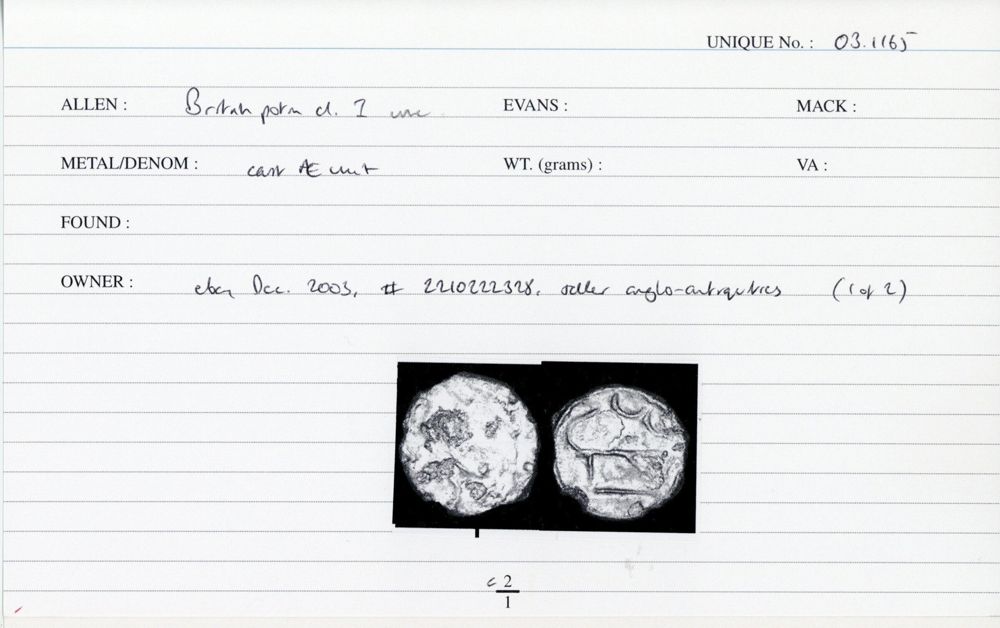 UNIQUE No. : 03.1165
ALLEN : British potin cl. I unc EVANS : MACK :
METAL/DENOM : cast Æ unit WT. (grams) : VA :
FOUND :
OWNER : ebay Dec. 2003, # 2210222328, seller anglo-antiquities (1 of 2)
c 2
1